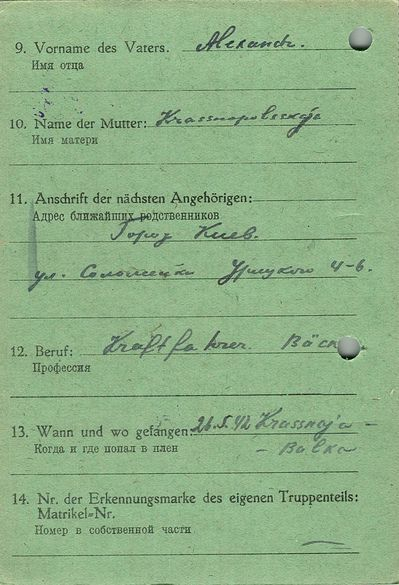 9. Vorname des Vaters. Alexandr.
Имя отца
10. Name der Mutter: Krassnopolsskaja
Имя матери
11. Anschrift der nächsten Angehörigen:
Адрес ближайших родственников
Город Киев.
ул. Соломенка Урицкого 4-6.
12. Beruf: Kraftfahrer.
Профессия
13. Wann und wo gefangen: 26.5.42 Krassnaja -
Когда и где попал в плен
- Balka
14. Nr. der Erkennungsmarke des eigenen Truppenteils:
Matrikel=Nr.
Номер в собственной части
—